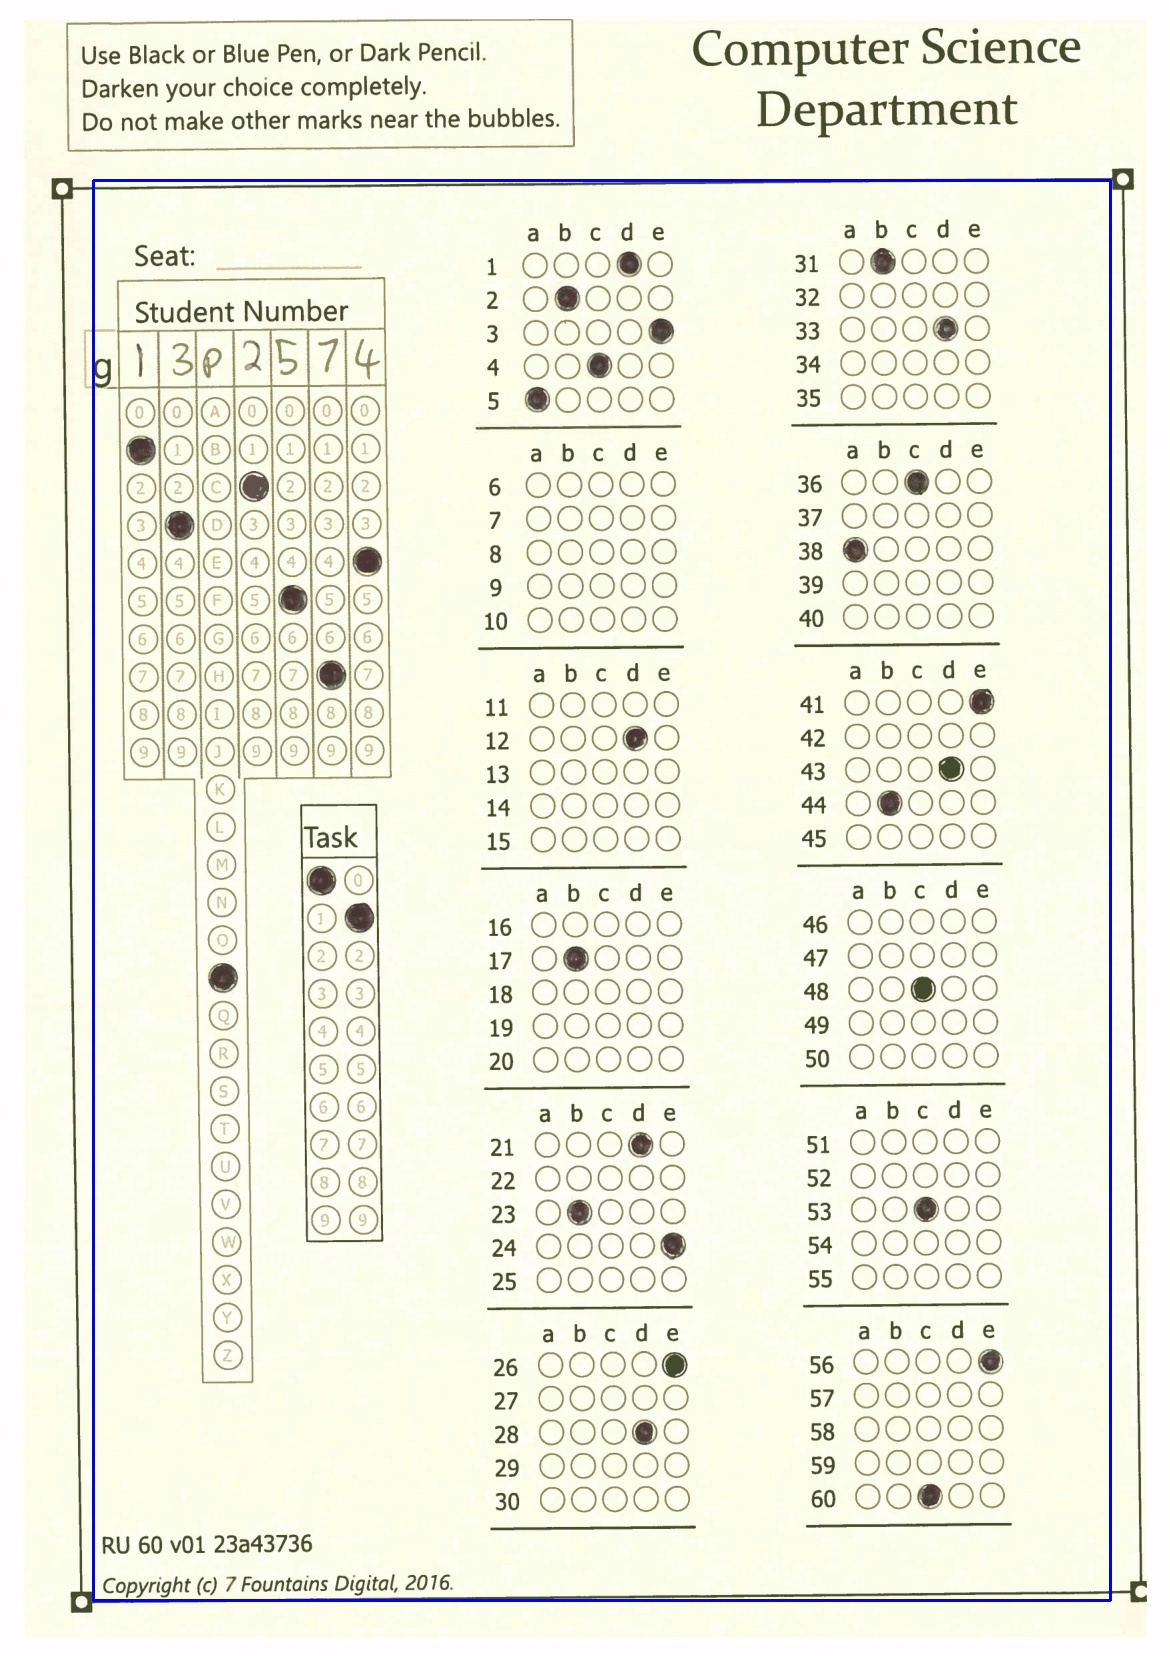 Use Black or Blue Pen, or Dark Pencil.
Darken your choice completely.
Do not make other marks near the bubbles.
Computer Science
Department
Seat:
Student Number
g 1 3 P 2 5 7 4
0 0 A 0 0 0 0
1 B 1 1 1 1
2 2 C 2 2 2
3 D 3 3 3 3
4 4 E 4 4 4
5 5 F 5 5 5
6 6 G 6 6 6 6
7 7 H 7 7 7
8 8 I 8 8 8 8
9 9 J 9 9 9 9
K
L
M
N
O
Q
R
S
T
U
V
W
X
Y
Z
Task
0
1
2 2
3 3
4 4
5 5
6 6
7 7
8 8
9 9
a b c d e
1
2
3
4
5
a b c d e
6
7
8
9
10
a b c d e
11
12
13
14
15
a b c d e
16
17
18
19
20
a b c d e
21
22
23
24
25
a b c d e
26
27
28
29
30
a b c d e
31
32
33
34
35
a b c d e
36
37
38
39
40
a b c d e
41
42
43
44
45
a b c d e
46
47
48
49
50
a b c d e
51
52
53
54
55
a b c d e
56
57
58
59
60
RU 60 v01 23a43736
Copyright (c) 7 Fountains Digital, 2016.